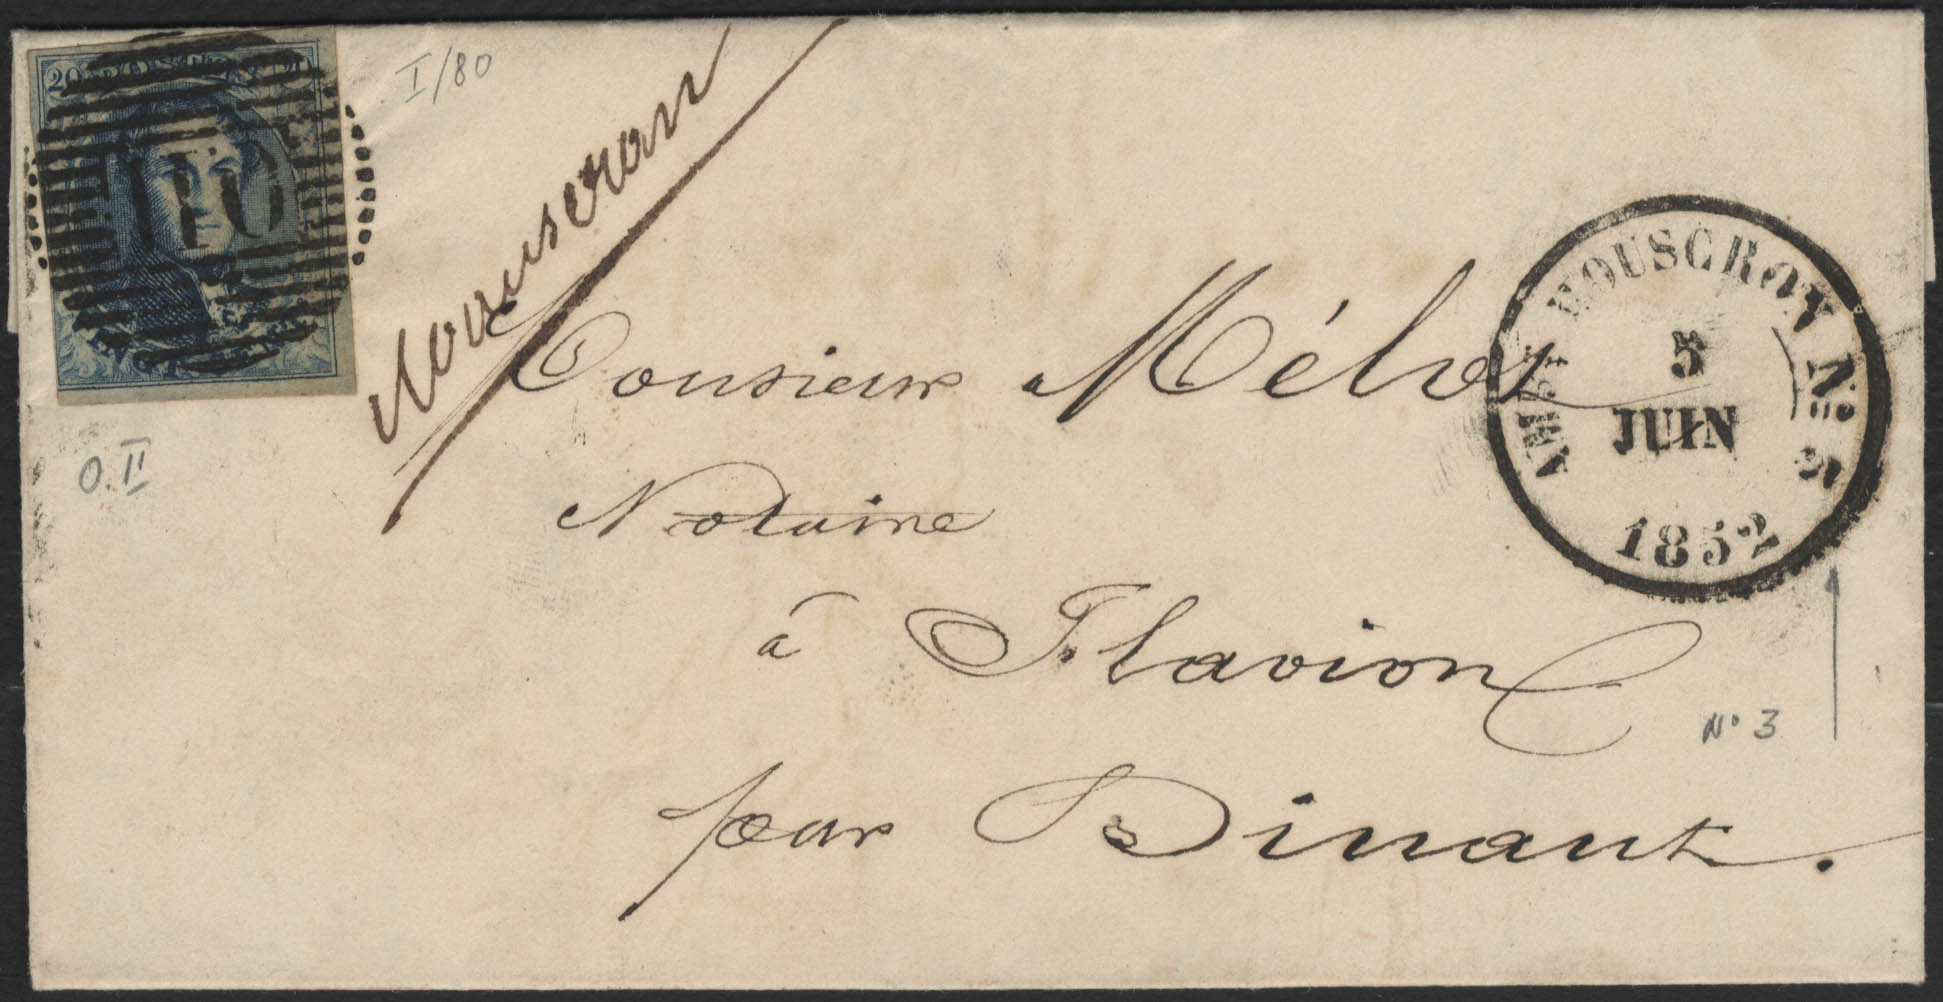 20
I/80
Mouscron
Monsieur Mélot
Notaire
à Flavion
pour Dinant.
O.II
AMBT MOUSCRON No 3
5
JUIN
1852
No 3